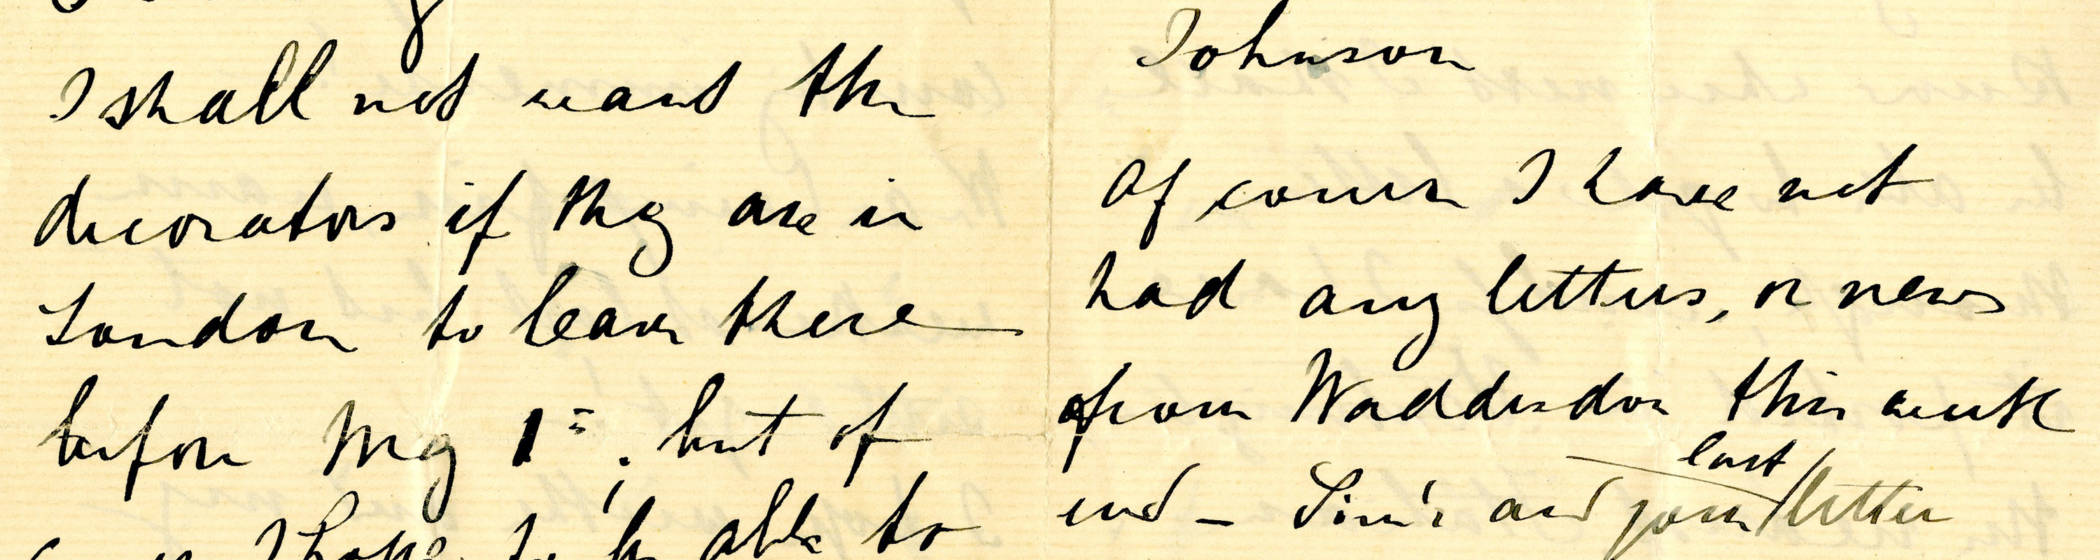 I shall not want the
decorators if they are in
London to leave there
before May 1st; but of
I hope to be able to
Johnson
Of course I have not
had any letters, or news
from Waddesdon this week
end – Sim's and your last letter